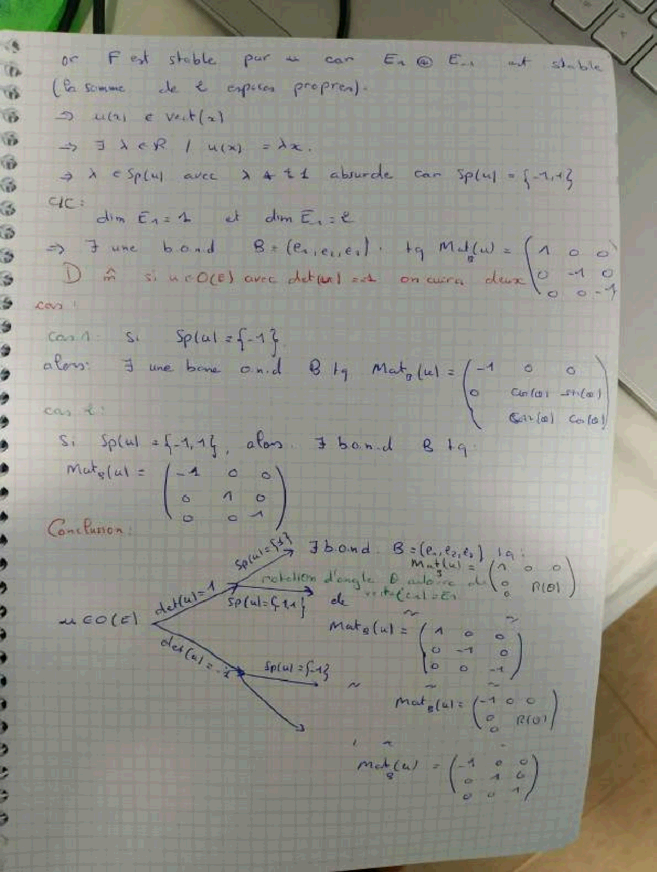 or F est stable par u car E₁ ⊕ E₋₁ est stable
(la somme de 2 espaces propres).
⇒ u(x) ∈ vect(x)
⇒ ∃ λ ∈ ℝ / u(x) = λx.
⇒ λ ∈ Sp(u) avec λ ≠ ±1 absurde car Sp(u) = {-1,1}
C/C:
dim E₁ = 1 et dim E₋₁ = 2
⇒ ∃ une b.o.n.d B = (e₁, e₂, e₃). tq Mat_B(u) = ( 1 0 0
0 -1 0
0 0 -1 )
D m̂ si u ∈ O(E) avec det(u) = -1 on aura deux
cas :
cas 1: si Sp(u) = {-1}
alors: ∃ une base o.n.d B tq Mat_B(u) = ( -1 0 0
0 cos(θ) -sin(θ)
sin(θ) cos(θ) )
cas 2:
Si Sp(u) = {-1,1}, alors. ∃ b.o.n.d B tq:
Mat_B(u) = ( -1 0 0
0 1 0
0 0 1 )
Conclusion:
Sp(u) = {1} ∃ b.o.n.d. B = (e₁, e₂, e₃) tq:
Mat_B(u) = ( 1 0 0
0 R(θ)
0 )
rotation d'angle θ autour de
vect(e₁) = E₁
det(u) = 1
Sp(u) = {-1,1} de
u ∈ O(E)
Mat_B(u) = ( 1 0 0
0 -1 0
0 0 -1 )
det(u) = -1
Sp(u) = {-1} ~ ~ ~
Mat_B(u) = ( -1 0 0
0 R(θ)
0 )
Mat_B(u) = ( -1 0 0
0 1 0
0 0 1 )